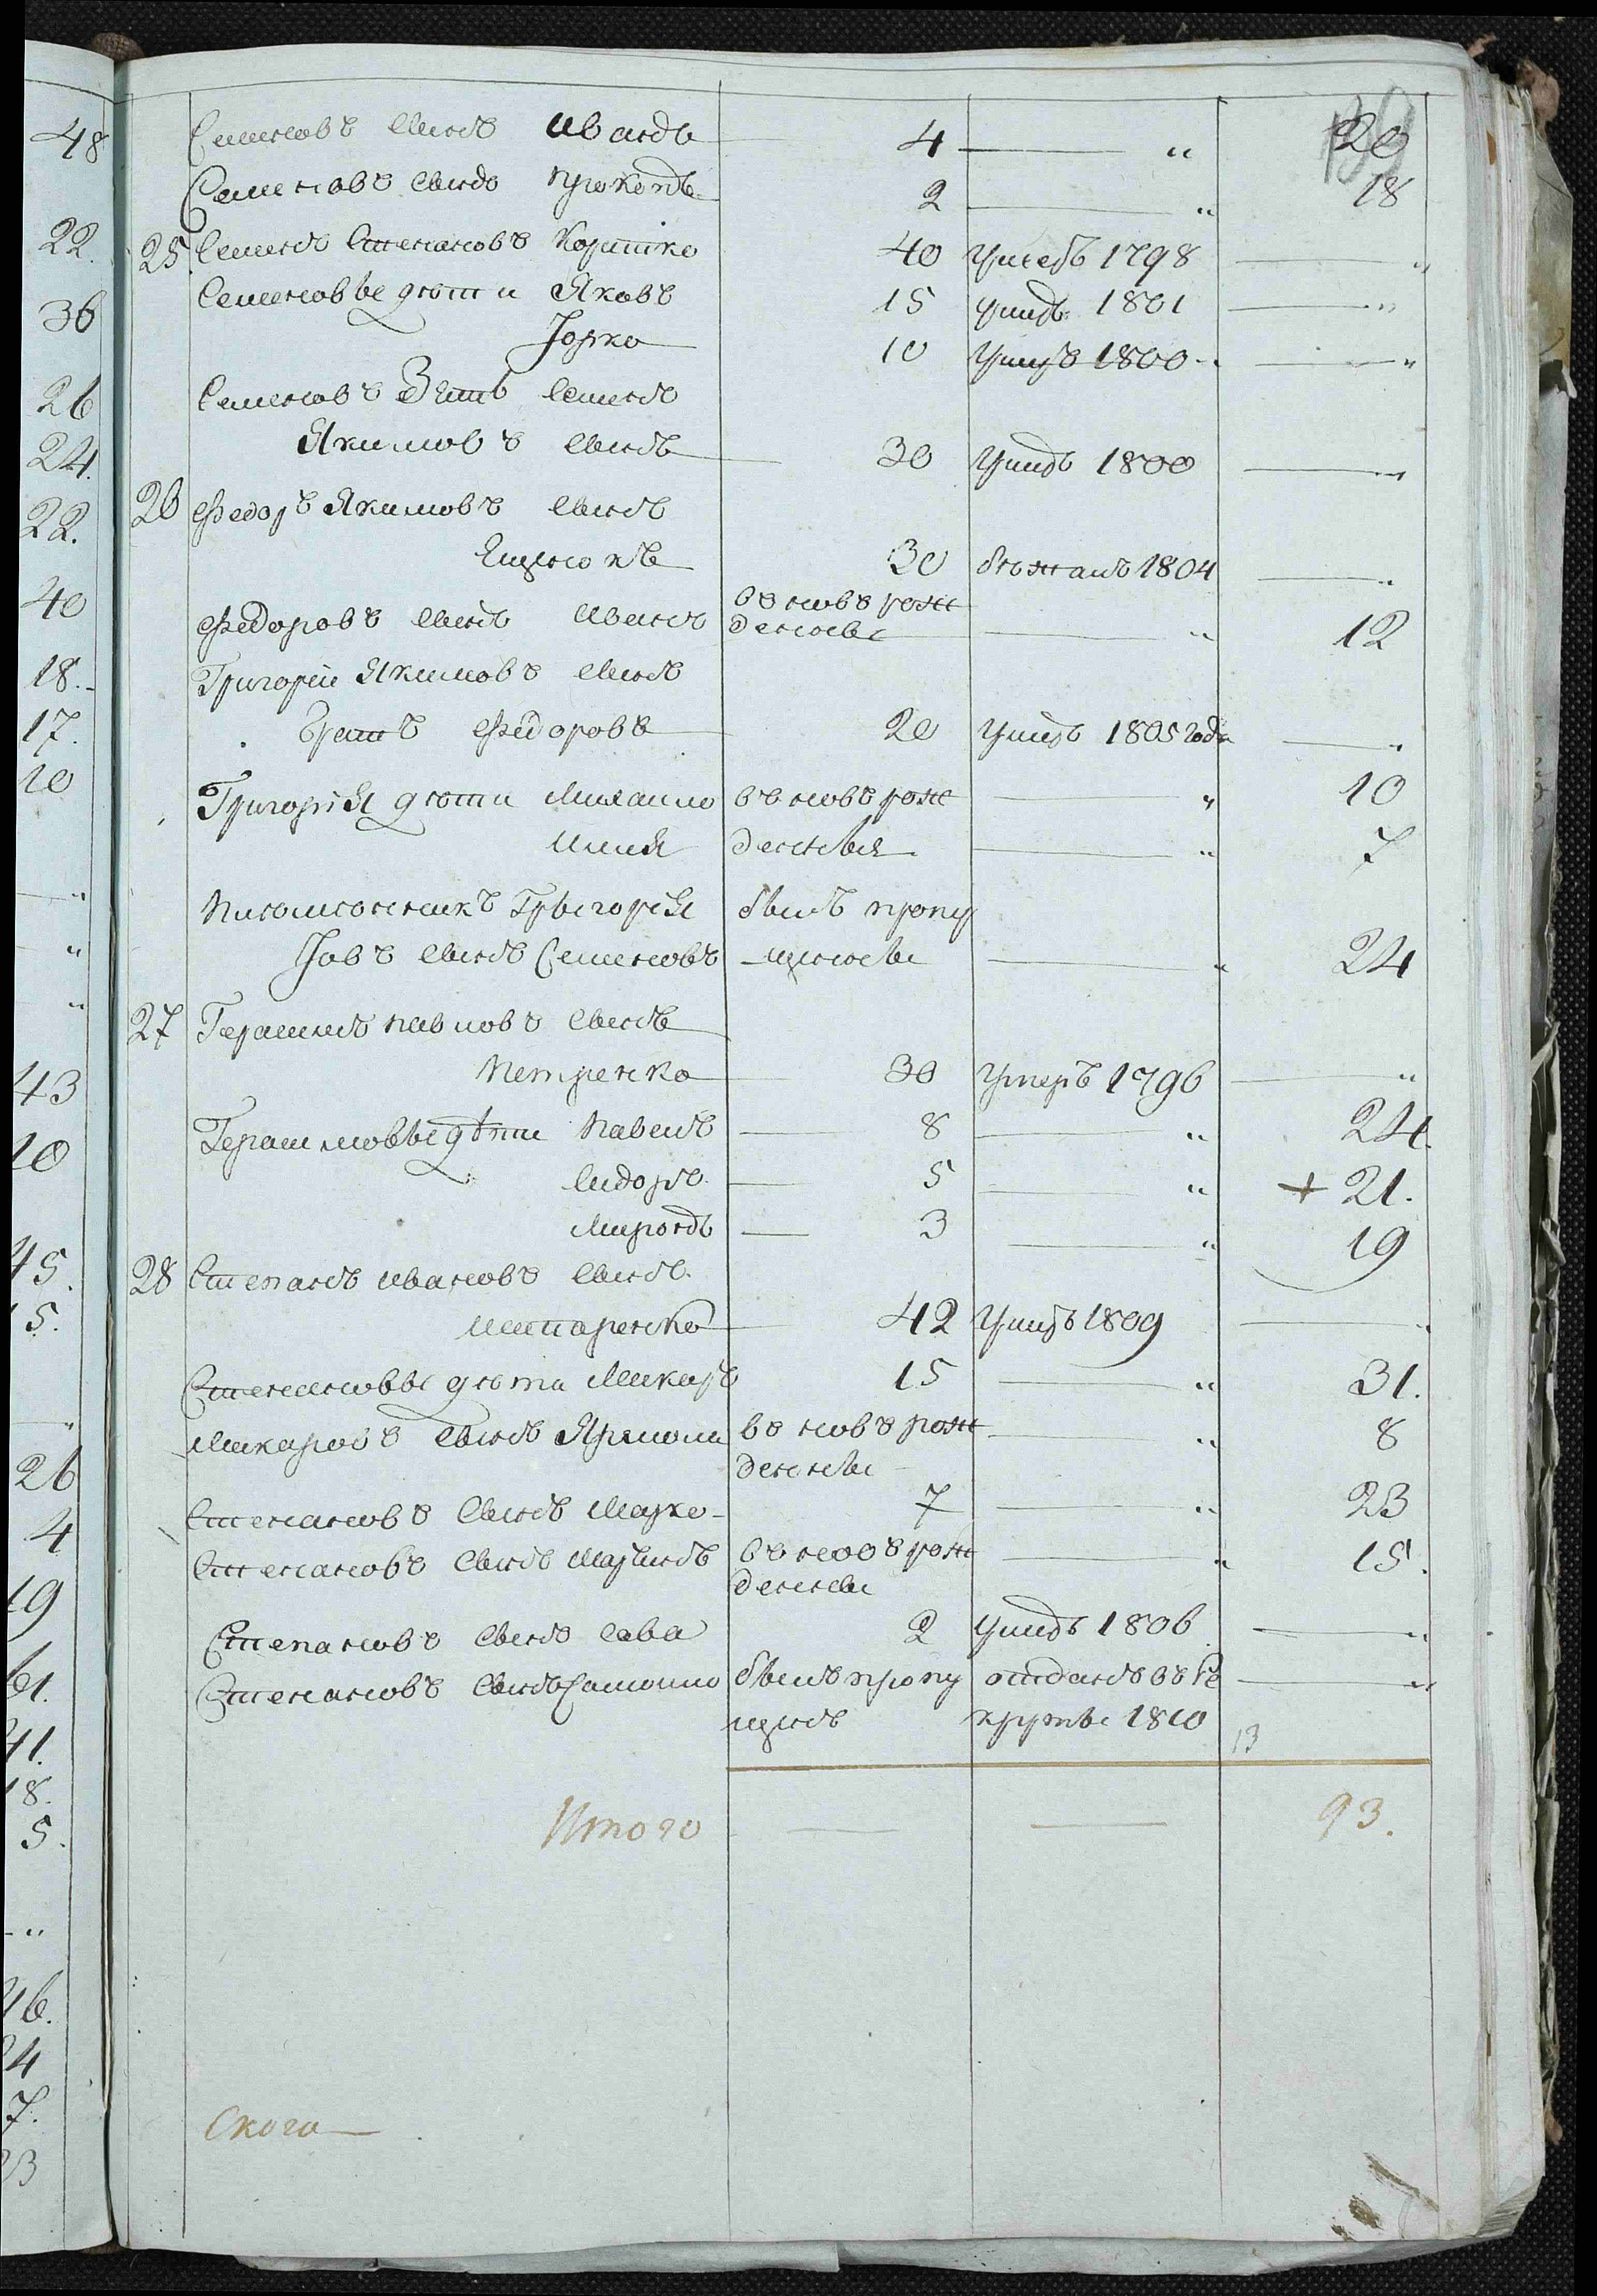 48
22.
36
26
24.
22.
40
18.
17.
10
43
10
45.
5.
26
4
19
61.
41.
18.
5.
46.
24
7.
23
Семеновъ сынъ Иванъ 4 — " 20
Семеновъ сынъ Прокопъ 2 — " 18
25 Семенъ Степановъ Коритко 40 Умеръ 1798 — "
Семеновы дети Яковъ 15 умеръ 1801 — "
Юрко 10 Умеръ 1800 — "
Семеновъ Зять Семенъ
Якимовъ сынъ 30 Умеръ 1800 — "
26 Федоръ Якимовъ сынъ
30 бежалъ 1804 — "
Федоровъ сынъ Иванъ въ новъ рож
денные — " 12
Григорей Якимовъ сынъ
братъ Федоровъ 20 Умеръ 1805 года — "
Григорія дети Михаило въ новъ рож — " 10
Илия денныя — " 7
Племенникъ Грыгорія былъ пропу
Іовъ сынъ Семеновъ щенные — " 24
27 Герасимъ Павловъ сынъ
Петренко 30 Умеръ 1796 — "
Герасимовы дѣти Павелъ — 8 — " 24
Сидоръ — 5 — " + 21.
Миронъ — 3 — " 19
28 Степанъ Ивановъ сынъ
42 Умеръ 1809 — "
Степановы дети Макаръ 15 — " 31.
Макаровъ сынъ Ярмола въ новъ рож — " 8
денные
Степановъ сынъ Марко 7 — " 23
Степановъ сынъ Мартинъ въ новъ рож — " 15.
денные
Степановъ сынъ Сава 2 Умеръ 1806 — "
Степановъ сынъ Самоило былъ пропу отданъ въ Ре — "
щенъ круты 1810 13
Итого — — 93.
Ского